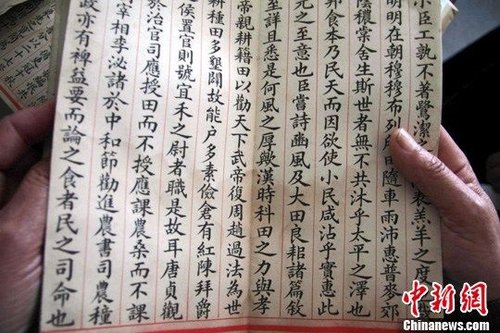 小臣工孰不著潔之羔羊之度
明明在朝穆穆布列隨車雨沛惠普麥郊
陰穰棠舍生斯世者無不共沐乎太平之澤也
食本乃民天而因欲使小民咸沾乎實惠此
元之至意也臣嘗詩豳風及大田良耜諸篇敘
至詳且悉是何風之厚歟漢時科田之力與孝
帝親耕籍田以勸天下武帝復周趙過法為世
耕種田多墾闢故能戶多素儉倉有紅陳拜爵
侯置官則號宜禾之尉者職是故耳唐貞觀
於治官司應授田而不授應課農桑而不課
宰相李泌諸於中和節勸進農書司農種
政亦有裨益要而論之食者民之司命也
中新网
Chinanews.com